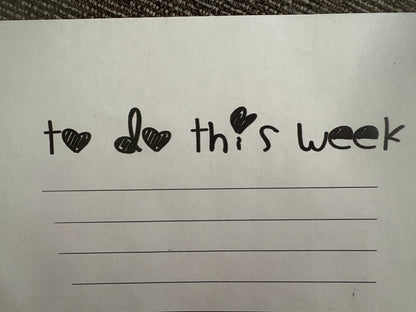 to do this week